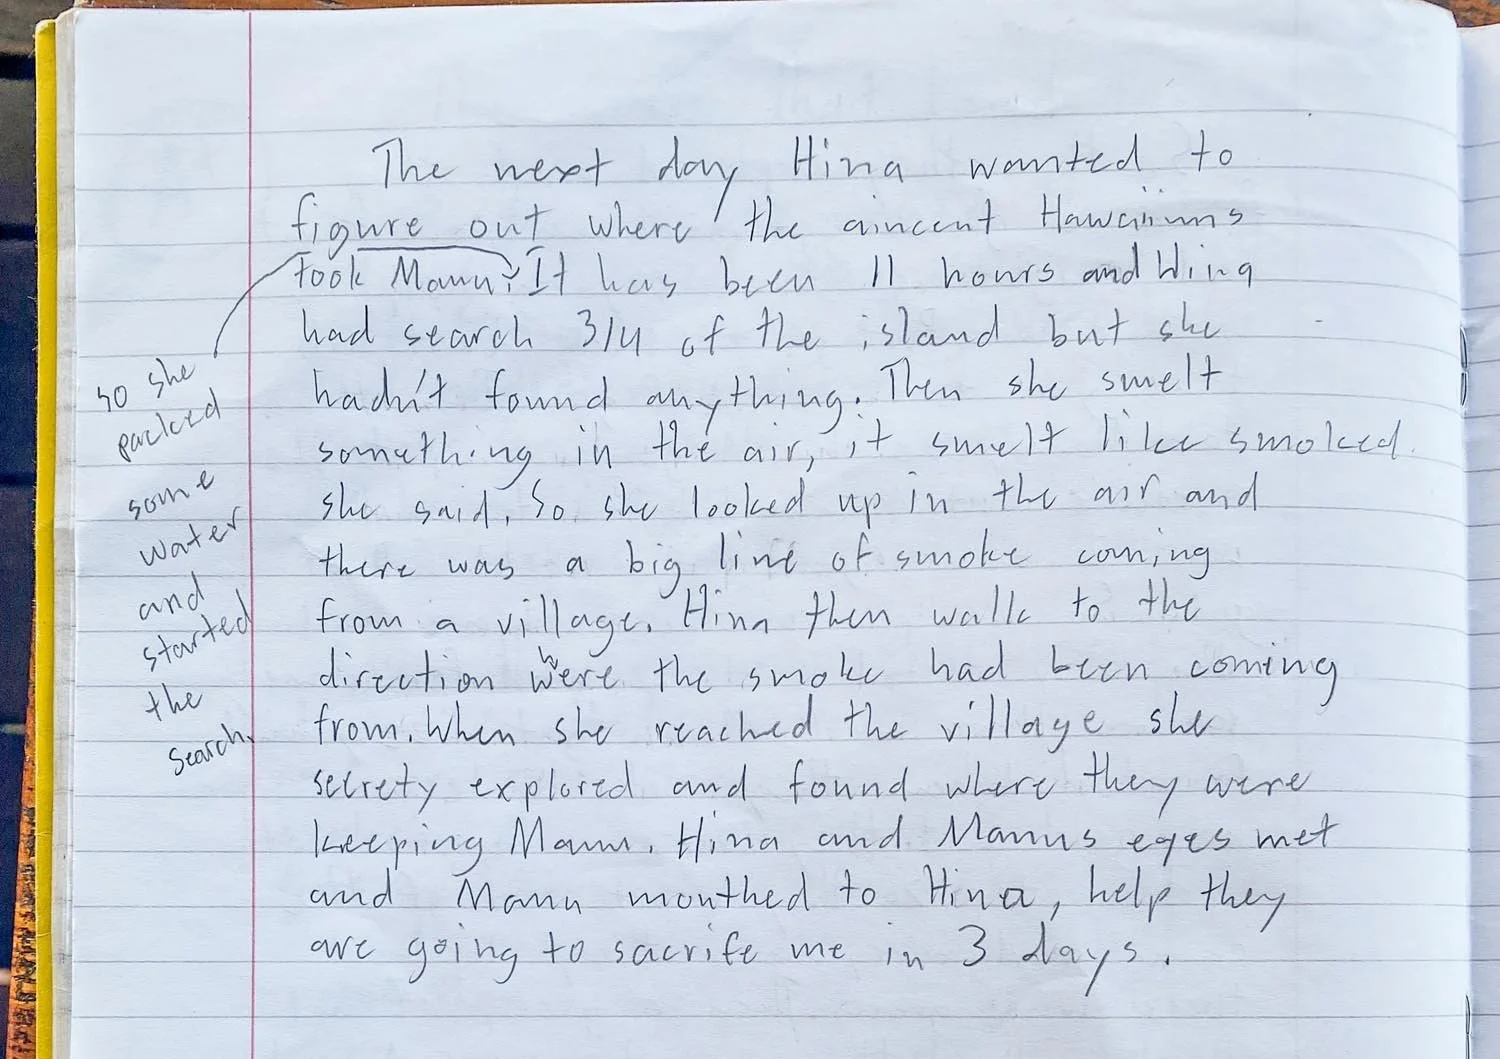 The next day Hina wanted to
figure out where the aincent Hawaiians
took Manu. It has been 11 hours and Hina
had search 3/4 of the island but she
hadn't found anything. Then she smelt
something in the air, it smelt like smoked
she said. So she looked up in the air and
there was a big line of smoke coming
from a village. Hina then walk to the
direction where the smoke had been coming
from. When she reached the village she
secrety explored and found where they were
keeping Manu. Hina and Manus eyes met
and Manu mouthed to Hina, help they
are going to sacrife me in 3 days.
so she
packed
some
water
and
started
the
search.